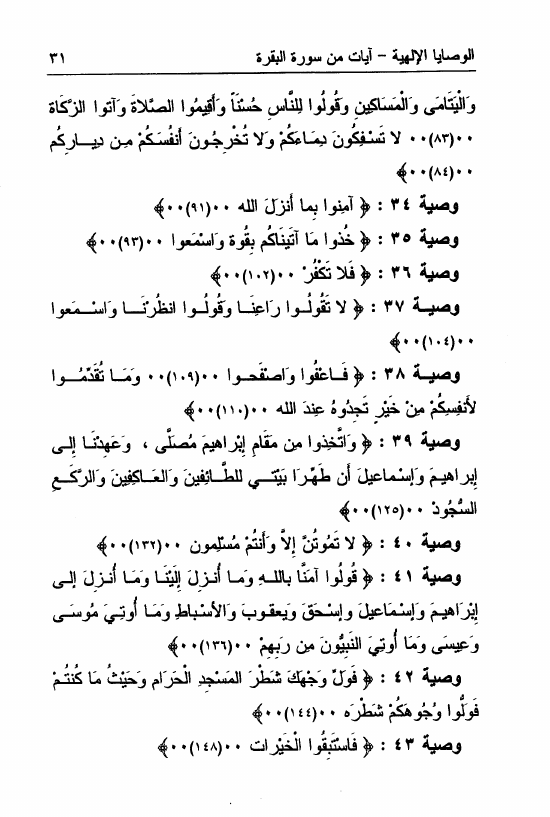 الوصايا الإلهية – آيات من سورة البقرة ٣١
وَالْيَتَامَى وَالْمَسَاكِينِ وَقُولُوا لِلنَّاسِ حُسْنًا وَأَقِيمُوا الصَّلاَةَ وَآتوا الزَّكَاةَ
٠٠(٨٣)٠٠ لا تَسْفِكُونَ دِمَاءَكُمْ وَلا تُخْرِجُونَ أَنفُسَكُمْ مِن دِيـارِكُم
٠٠(٨٤)٠٠﴾
وصية ٣٤ : ﴿ آمِنُوا بِما أَنزلَ الله ٠٠(٩١)٠٠﴾
وصية ٣٥ : ﴿ خُذُوا مَا آتَيْنَاكُم بِقُوة وَاسْمَعوا ٠٠(٩٣)٠٠﴾
وصية ٣٦ : ﴿ فَلا تَكْفُرْ ٠٠(١٠٢)٠٠﴾
وصيـة ٣٧ : ﴿ لا تَقُولُـوا رَاعِنَـا وَقُولُـوا انظُرْنَـا وَاسْـمَعوا
٠٠(١٠٤)٠٠﴾
وصيـة ٣٨ : ﴿ فَـاعْفُوا وَاصْفَحـوا ٠٠(١٠٩)٠٠ وَمَـا تُقَدِّمُـوا
لأَنفِسِكُمْ مِنْ خَيْرٍ تَجِدُوهُ عِندَ الله ٠٠(١١٠)٠٠﴾
وصية ٣٩ : ﴿ وَاتَّخِذوا مِن مَقَامِ إِبْراهِيمَ مُصَلَّى ، وَعَهِدْنَا إلى
إبراهيمَ وَإسْماعيلَ أن طَهِّرَا بَيْتـي للطَّـائِفينَ وَالعَـاكِفِينَ وَالرُّكَّـعِ
السُّجُودْ ٠٠(١٢٥)٠٠﴾
وصية ٤٠ : ﴿ لا تَمُوتُنَّ إلاَّ وَأَنتُمْ مُسْلِمون ٠٠(١٣٢)٠٠﴾
وصية ٤١ : ﴿ قُولُوا آمَنَّا باللـهِ وَما أُنزلَ إِلَيْنَا وَمَـا أُنزلَ إلى
إبْرَاهِيمَ وَإسْمَاعيلَ وَإسْحَقَ وَيعقـوبَ وَالأسْباطِ وَمَـا أُوتِيَ مُوسَى
وَعِيسَى وَمَا أُوتِيَ النَبِيُّونَ مِن رَبِهِمْ ٠٠(١٣٦)٠٠﴾
وصية ٤٢ : ﴿ فَوَلِّ وَجْهَكَ شَطْرَ المَسْجِدِ الْحَرَامِ وَحَيْثُ مَا كُنتُـمْ
فَوَلُّوا وُجُوهَكُمْ شَطْرَه ٠٠(١٤٤)٠٠﴾
وصية ٤٣ : ﴿ فَاسْتَبِقُوا الْخَيْرات ٠٠(١٤٨)٠٠﴾